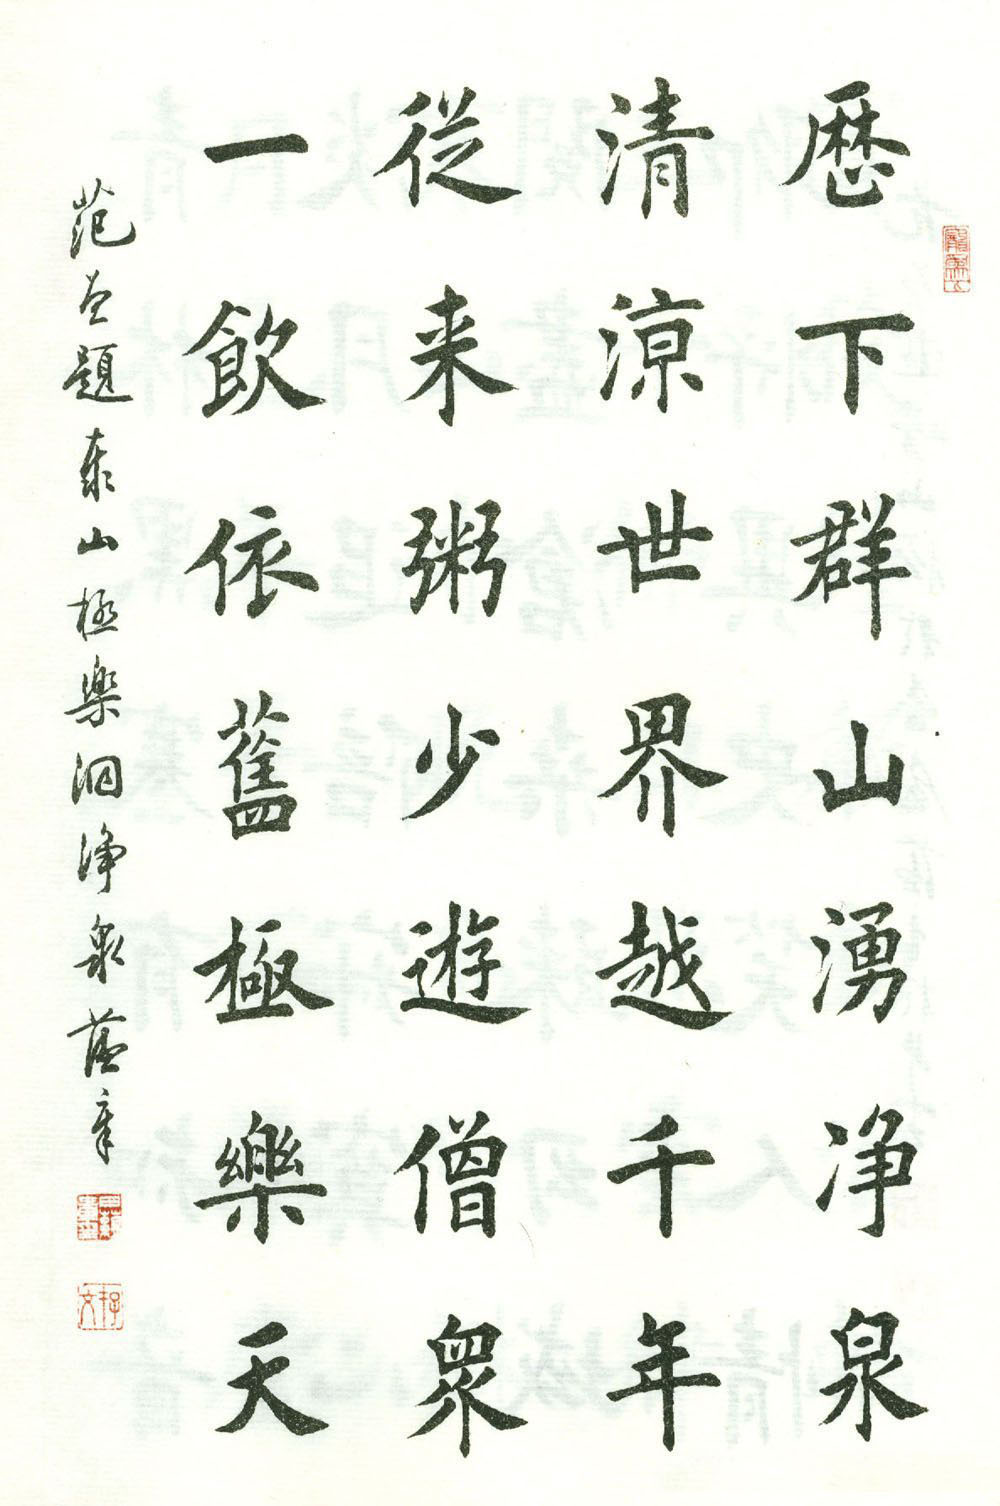 歴下群山湧净泉
清涼世界越千年
從来粥少遊僧衆
一飲依舊極樂天
題泰山極樂洞净泉